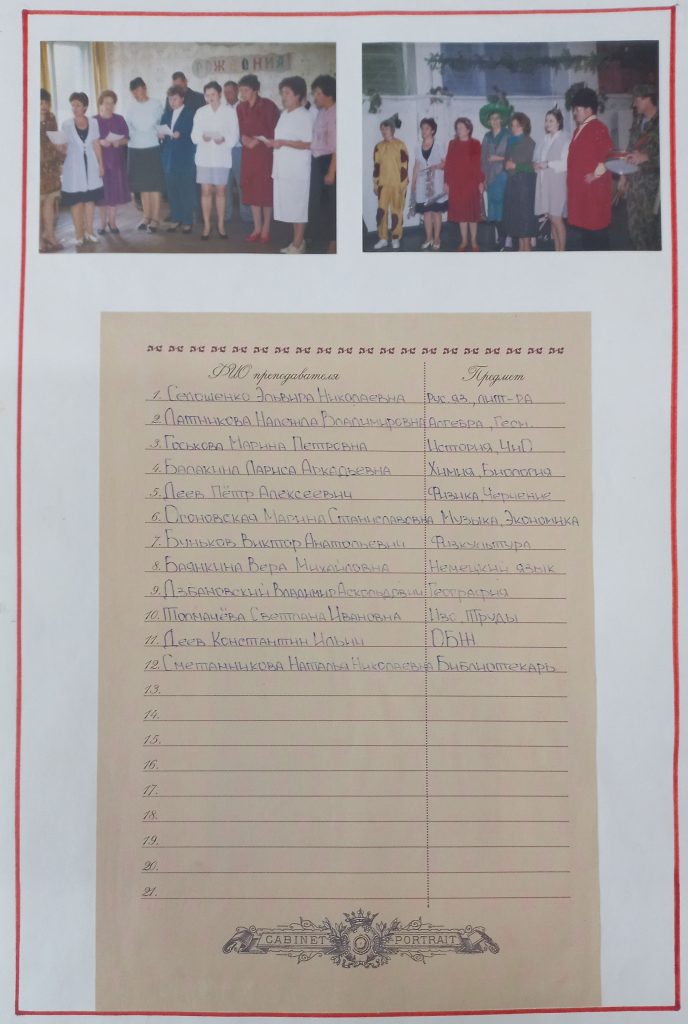 ФИО преподавателя Предмет
1. Селошенко Эльвира Николаевна Рус.яз, лит-ра
2. Латникова Надежда Владимировна Алгебра, Геом.
3. Госькова Марина Петровна История, ЧиО
4. Балакина Лариса Аркадьевна Химия, Биология
5. Деев Пётр Алексеевич Физика, Черчение
6. Огоновская Марина Станиславовна Музыка, Экономика
7. Буньков Виктор Анатольевич Физкультура
8. Баянкина Вера Михайловна Немецкий язык
9. Дзбановский Владимир Аскольдович География
10. Толмачёва Светлана Ивановна Изо, Труды
11. Деев Константин Ильич ОБЖ
12. Сметанникова Наталья Николаевна Библиотекарь
13.
14.
15.
16.
17.
18.
19.
20.
21.
CABINET PORTRAIT